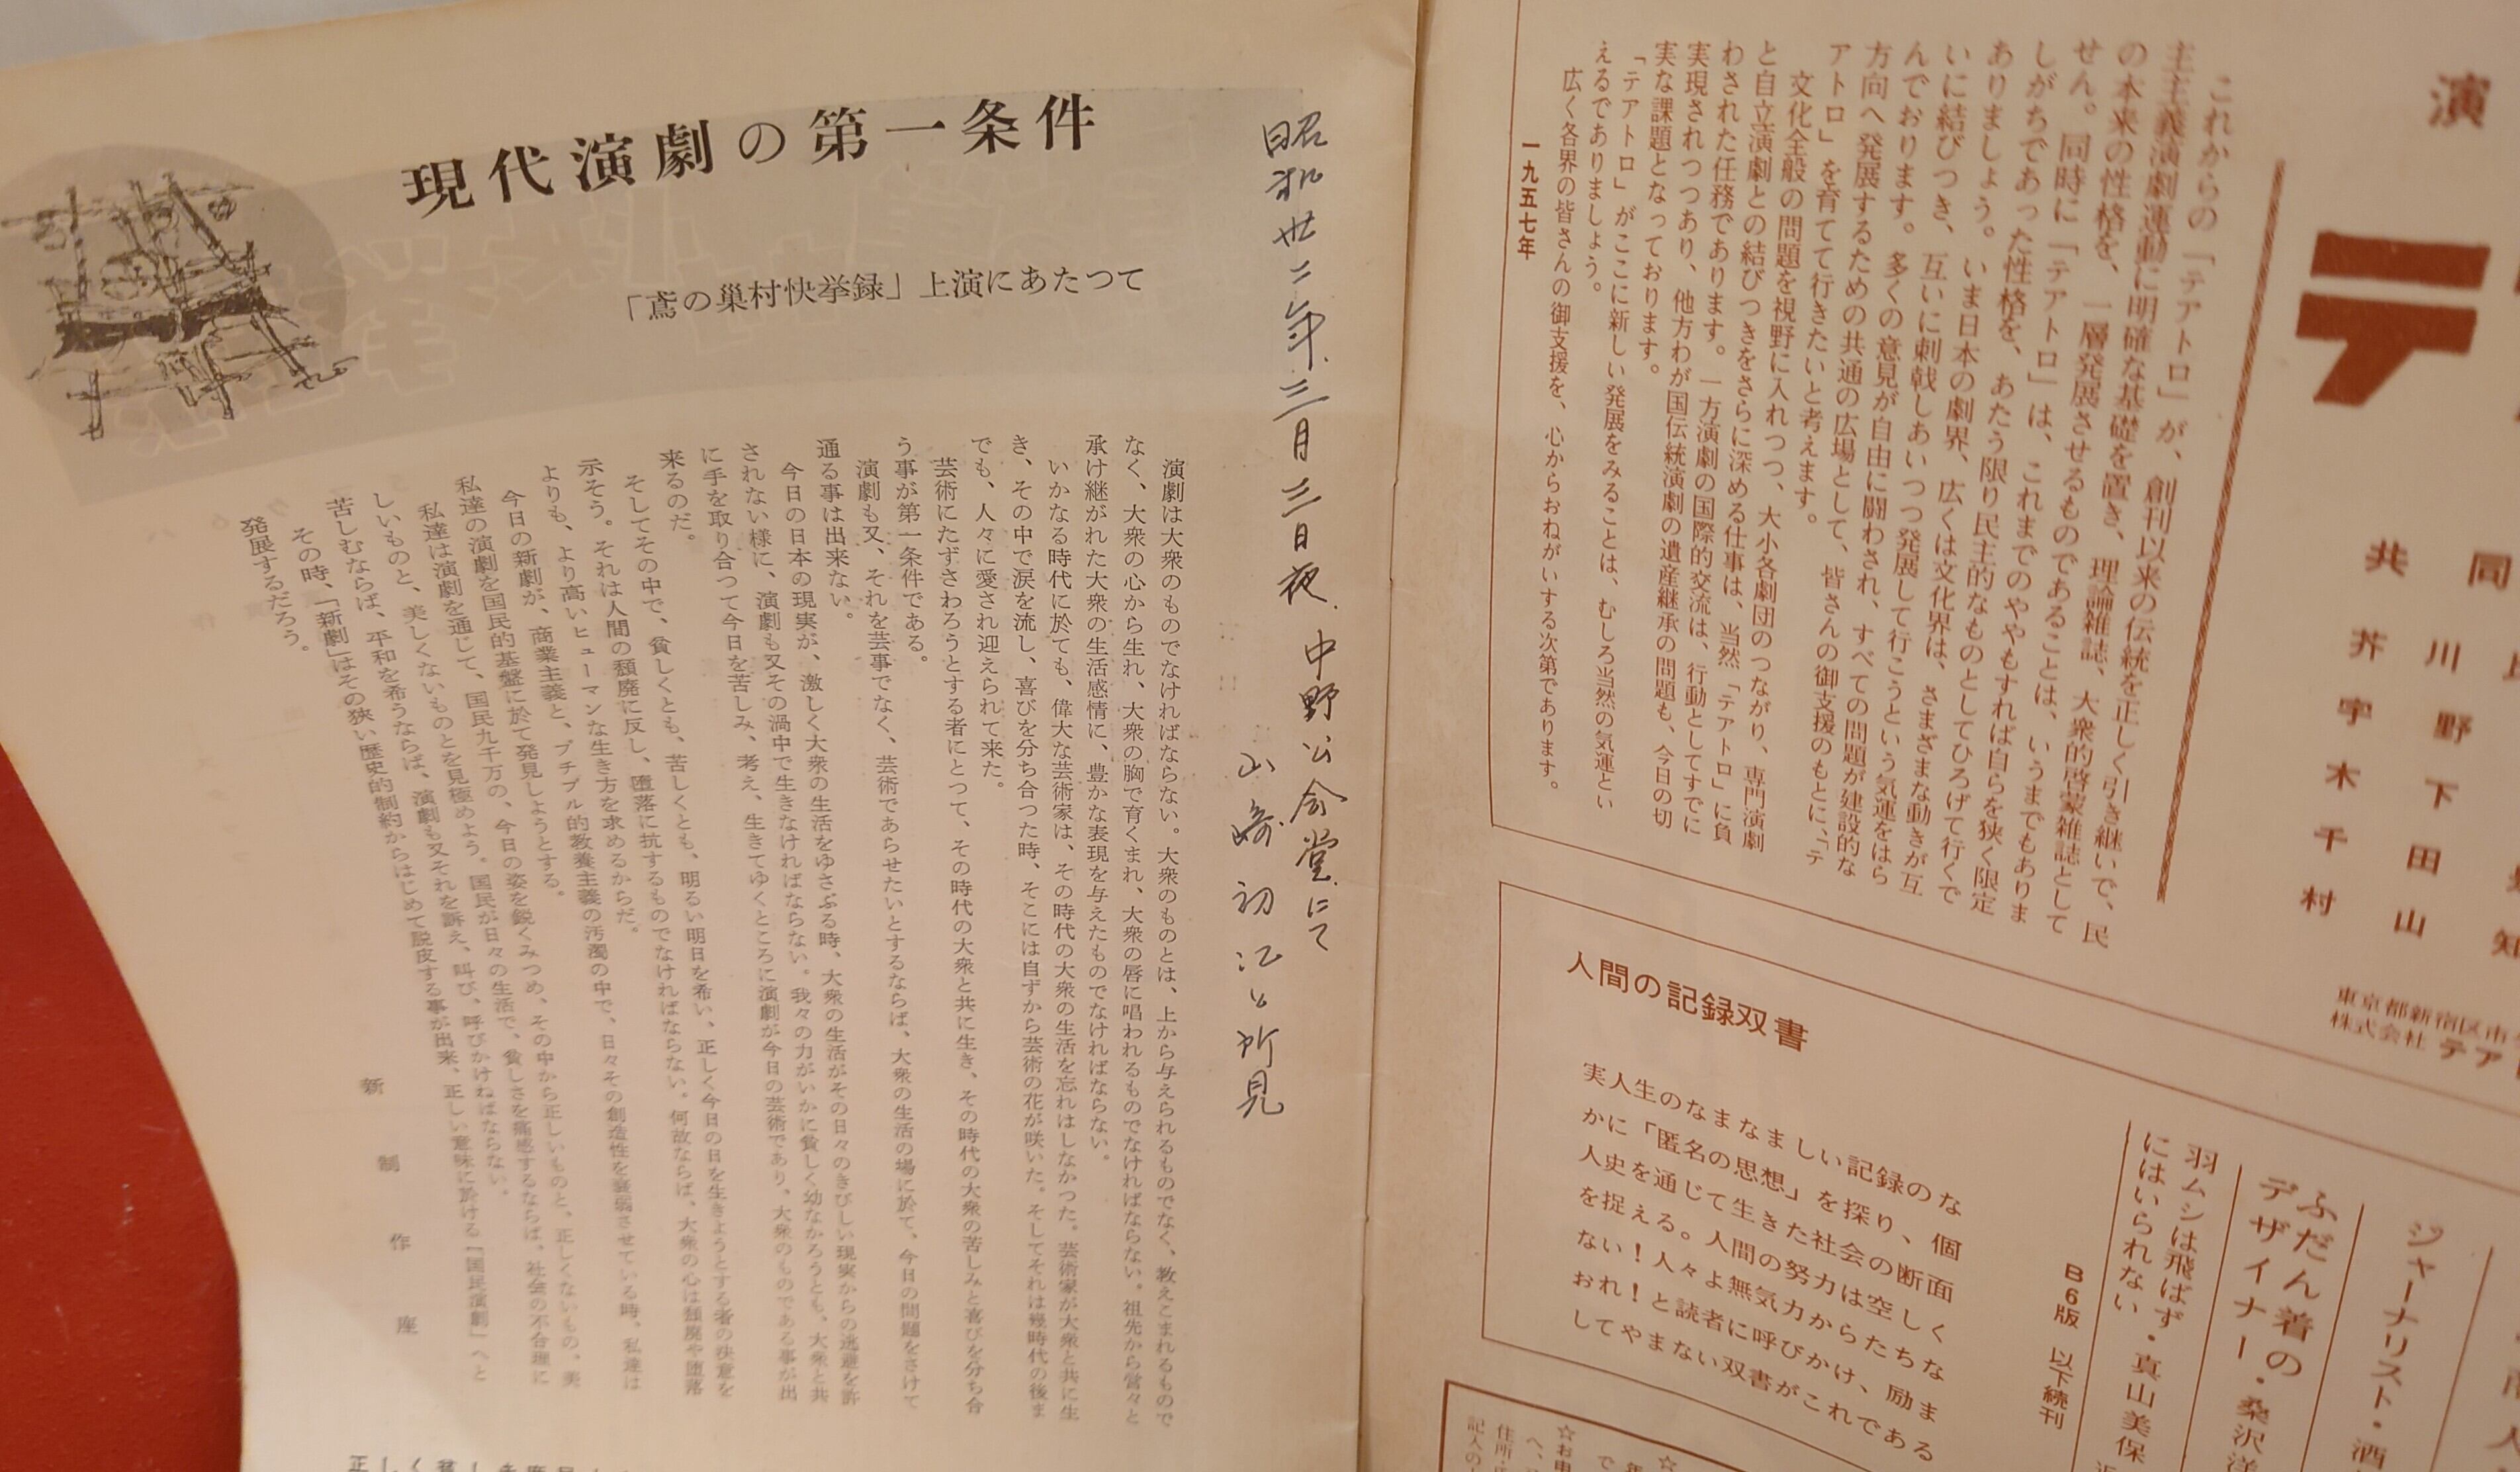 演
テ
同
川野下田山
共芥宇木千村
東京都新宿区市
株式会社 テア
これからの「テアトロ」が、創刊以来の伝統を正しく引き継いで、民
主主義演劇運動に明確な基礎を置き、理論雑誌、大衆的啓蒙雑誌として
の本来の性格を、一層発展させるものであることは、いうまでもありま
せん。同時に「テアトロ」は、これまでのややもすれば自らを狭く限定
しがちであった性格を、あたう限り民主的なものとしてひろげて行くで
ありましょう。いま日本の劇界、広くは文化界は、さまざまな動きが互
いに結びつき、互いに刺戟しあいつつ発展して行こうという気運をはら
んでおります。多くの意見が自由に闘わされ、すべての問題が建設的な
方向へ発展するための共通の広場として、皆さんの御支援のもとに、「テ
アトロ」を育てて行きたいと考えます。
文化全般の問題を視野に入れつつ、大小各劇団のつながり、専門演劇
と自立演劇との結びつきをさらに深める仕事は、当然「テアトロ」に負
わされた任務であります。一方演劇の国際的交流は、行動としてすでに
実現されつつあり、他方わが国伝統演劇の遺産継承の問題も、今日の切
実な課題となっております。
「テアトロ」がここに新しい発展をみることは、むしろ当然の気運とい
えるでありましょう。
広く各界の皆さんの御支援を、心からおねがいする次第であります。
一九五七年
ジャーナリスト・酒
ふだん着の
デザイナー・桑沢洋
羽ムシは飛ばず・真山美保
にはいられない
B6版 以下続刊
人間の記録双書
実人生のなまなましい記録のな
かに「匿名の思想」を探り、個
人史を通じて生きた社会の断面
を捉える。人間の努力は空しく
ない！人々よ無気力からたちな
おれ！と読者に呼びかけ、励ま
してやまない双書がこれである
昭和卅二年.三月三日夜.中野公会堂にて
山崎初江と所見
現代演劇の第一条件
「鳶の巣村快挙録」上演にあたつて
演劇は大衆のものでなければならない。大衆のものとは、上から与えられるものでなく、教えこまれるもので
なく、大衆の心から生れ、大衆の胸で育くまれ、大衆の唇に唱われるものでなければならない。祖先から営々と
承け継がれた大衆の生活感情に、豊かな表現を与えたものでなければならない。
いかなる時代に於ても、偉大な芸術家は、その時代の大衆の生活を忘れはしなかつた。芸術家が大衆と共に生
き、その中で涙を流し、喜びを分ち合つた時、そこには自ずから芸術の花が咲いた。そしてそれは幾時代の後ま
でも、人々に愛され迎えられて来た。
芸術にたずさわろうとする者にとつて、その時代の大衆と共に生き、その時代の大衆の苦しみと喜びを分ち合
う事が第一条件である。
演劇も又、それを芸事でなく、芸術であらせたいとするならば、大衆の生活の場に於て、今日の問題をさけて
通る事は出来ない。
今日の日本の現実が、激しく大衆の生活をゆさぶる時、大衆の生活がその日々のきびしい現実からの逃避を許
されない様に、演劇も又その渦中で生きなければならない。我々の力がいかに貧しく幼なかろうとも、大衆と共
に手を取り合つて今日を苦しみ、考え、生きてゆくところに演劇が今日の芸術であり、大衆のものである事が出
来るのだ。
そしてその中で、貧しくとも、苦しくとも、明るい明日を希い、正しく今日の日を生きようとする者の決意を
示そう。それは人間の頽廃に反し、堕落に抗するものでなければならない。何故ならば、大衆の心は頽廃や堕落
よりも、より高いヒューマンな生き方を求めるからだ。
今日の新劇が、商業主義と、プチブル的教養主義の汚濁の中で、日々その創造性を衰弱させている時、私達は
私達の演劇を国民的基盤に於て発見しようとする。
私達は演劇を通じて、国民九千万の、今日の姿を鋭くみつめ、その中から正しいものと、正しくないもの、美
しいものと、美しくないものとを見極めよう。国民が日々の生活で、貧しさを痛感するならば、社会の不合理に
苦しむならば、平和を希うならば、演劇も又それを訴え、叫び、呼びかけねばならない。
その時、「新劇」はその狭い歴史的制約からはじめて脱皮する事が出来、正しい意味に於ける「国民演劇」へと
発展するだろう。
新制作座